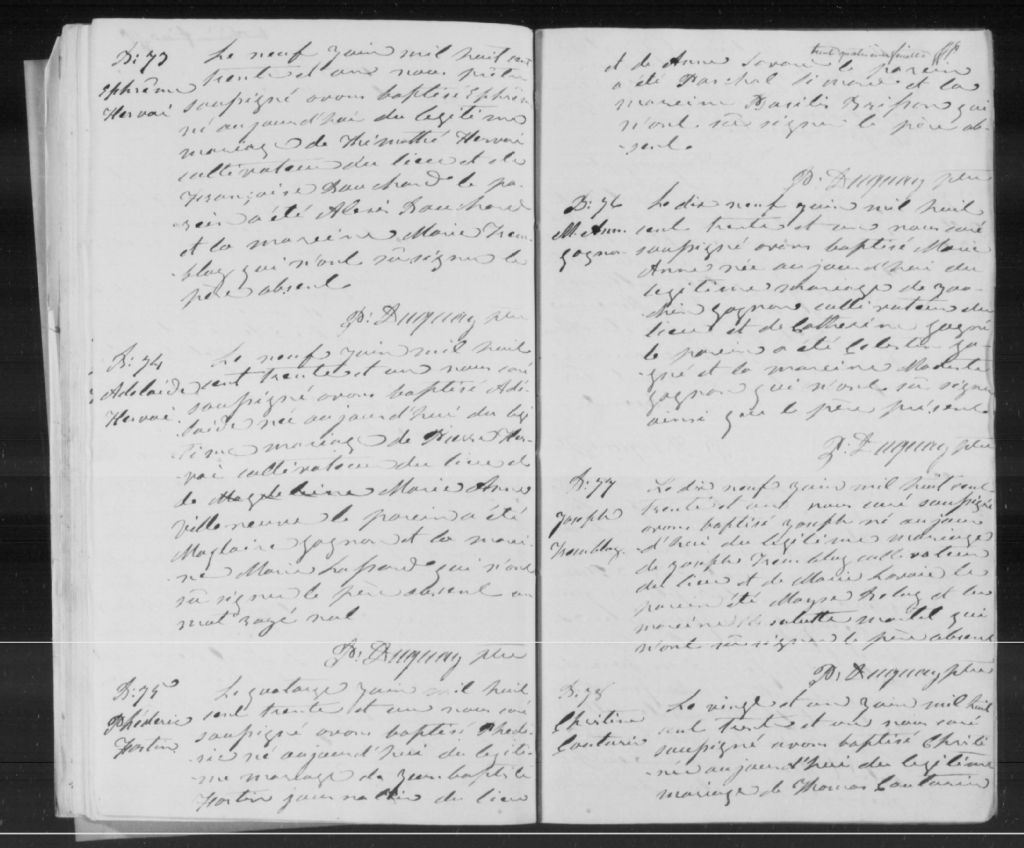 B: 73
Ephrême
Hervai
Le neuf juin mil huit cent
trente et un nous prêtre
soussigné avons baptisé Ephrêm
né aujourd'hui du legitime
mariage de Thimothé Hervai
cultivateur du lieu et de
Françoise Bouchard le pa-
rein a été Alexis Bouchard
et la mareine Marie Trem-
blay qui n'ont sû signer le
père absent.
P: Duguay ptre
B: 74
Adelaide
Hervai
Le neuf juin mil huit
cent trente et un nous curé
soussigné avons baptisé Adé-
laide née aujourd'hui du legi-
time mariage de Pierre Her-
vai cultivateur du lieu et
de Magdeleine Marie Anne
Villeneuve le parein a été
Magloire Gagnon et la marei-
ne Marie qui n'ont
sû signer le père absent un
mot rayé nul
P: Duguay ptre
B: 75
Phéderic
Fortin
Le quatorze juin mil huit
cent trente et un nous curé
soussigné avons baptisé Phede-
ric né aujourd'hui du legiti-
me mariage de Jean baptiste
Fortin journalier du lieu
trente quatrieme feuillet
et de Anne Savoie le parein
a été Paschal Simard et la
mareine Basilis Brisson qui
n'ont sû signer le père ab-
sent.
P: Duguay ptre
B: 76
M. Ann.
Gagnon
Le dix neuf juin mil huit
cent trente et un nous curé
soussigné avons baptisé Marie
Anne née aujourd'hui du
legitime mariage de Joa-
chin Gagnon cultivateur du
lieu et de Catherine Gagné
le parein a été Celestin Ga-
gné et la mareine Modeste
Gagnon qui n'ont sû signer
ainsi que le père présent.
P: Duguay ptre
B: 77
Joseph
Tremblay
Le dix neuf juin mil huit cent
trente et un nous curé soussigné
avons baptisé Joseph né aujour-
d'hui du legitime mariage
de Joseph Tremblay cultivateur
du lieu et de Marie Lavoie le
parein été Moyse Bolay et la
mareine qui
n'ont sû signer le père absent
P: Duguay ptre
B: 78
Christine
Couturier
Le vingt et un juin mil huit
cent trente et un nous curé
soussigné avons baptisé Christi
née aujourd'hui du legitime
mariage de Thomas Couturier